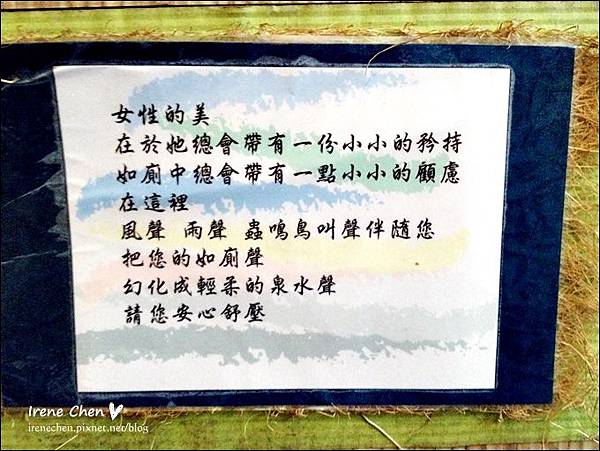 女性的美
在於她總會帶有一份小小的矜持
如廁中總會帶有一點小小的顧慮
在這裡
風聲 雨聲 蟲鳴鳥叫聲伴隨您
把您的如廁聲
幻化成輕柔的泉水聲
請您安心舒壓
Irene Chen
irenechen.pixnet.net/blog